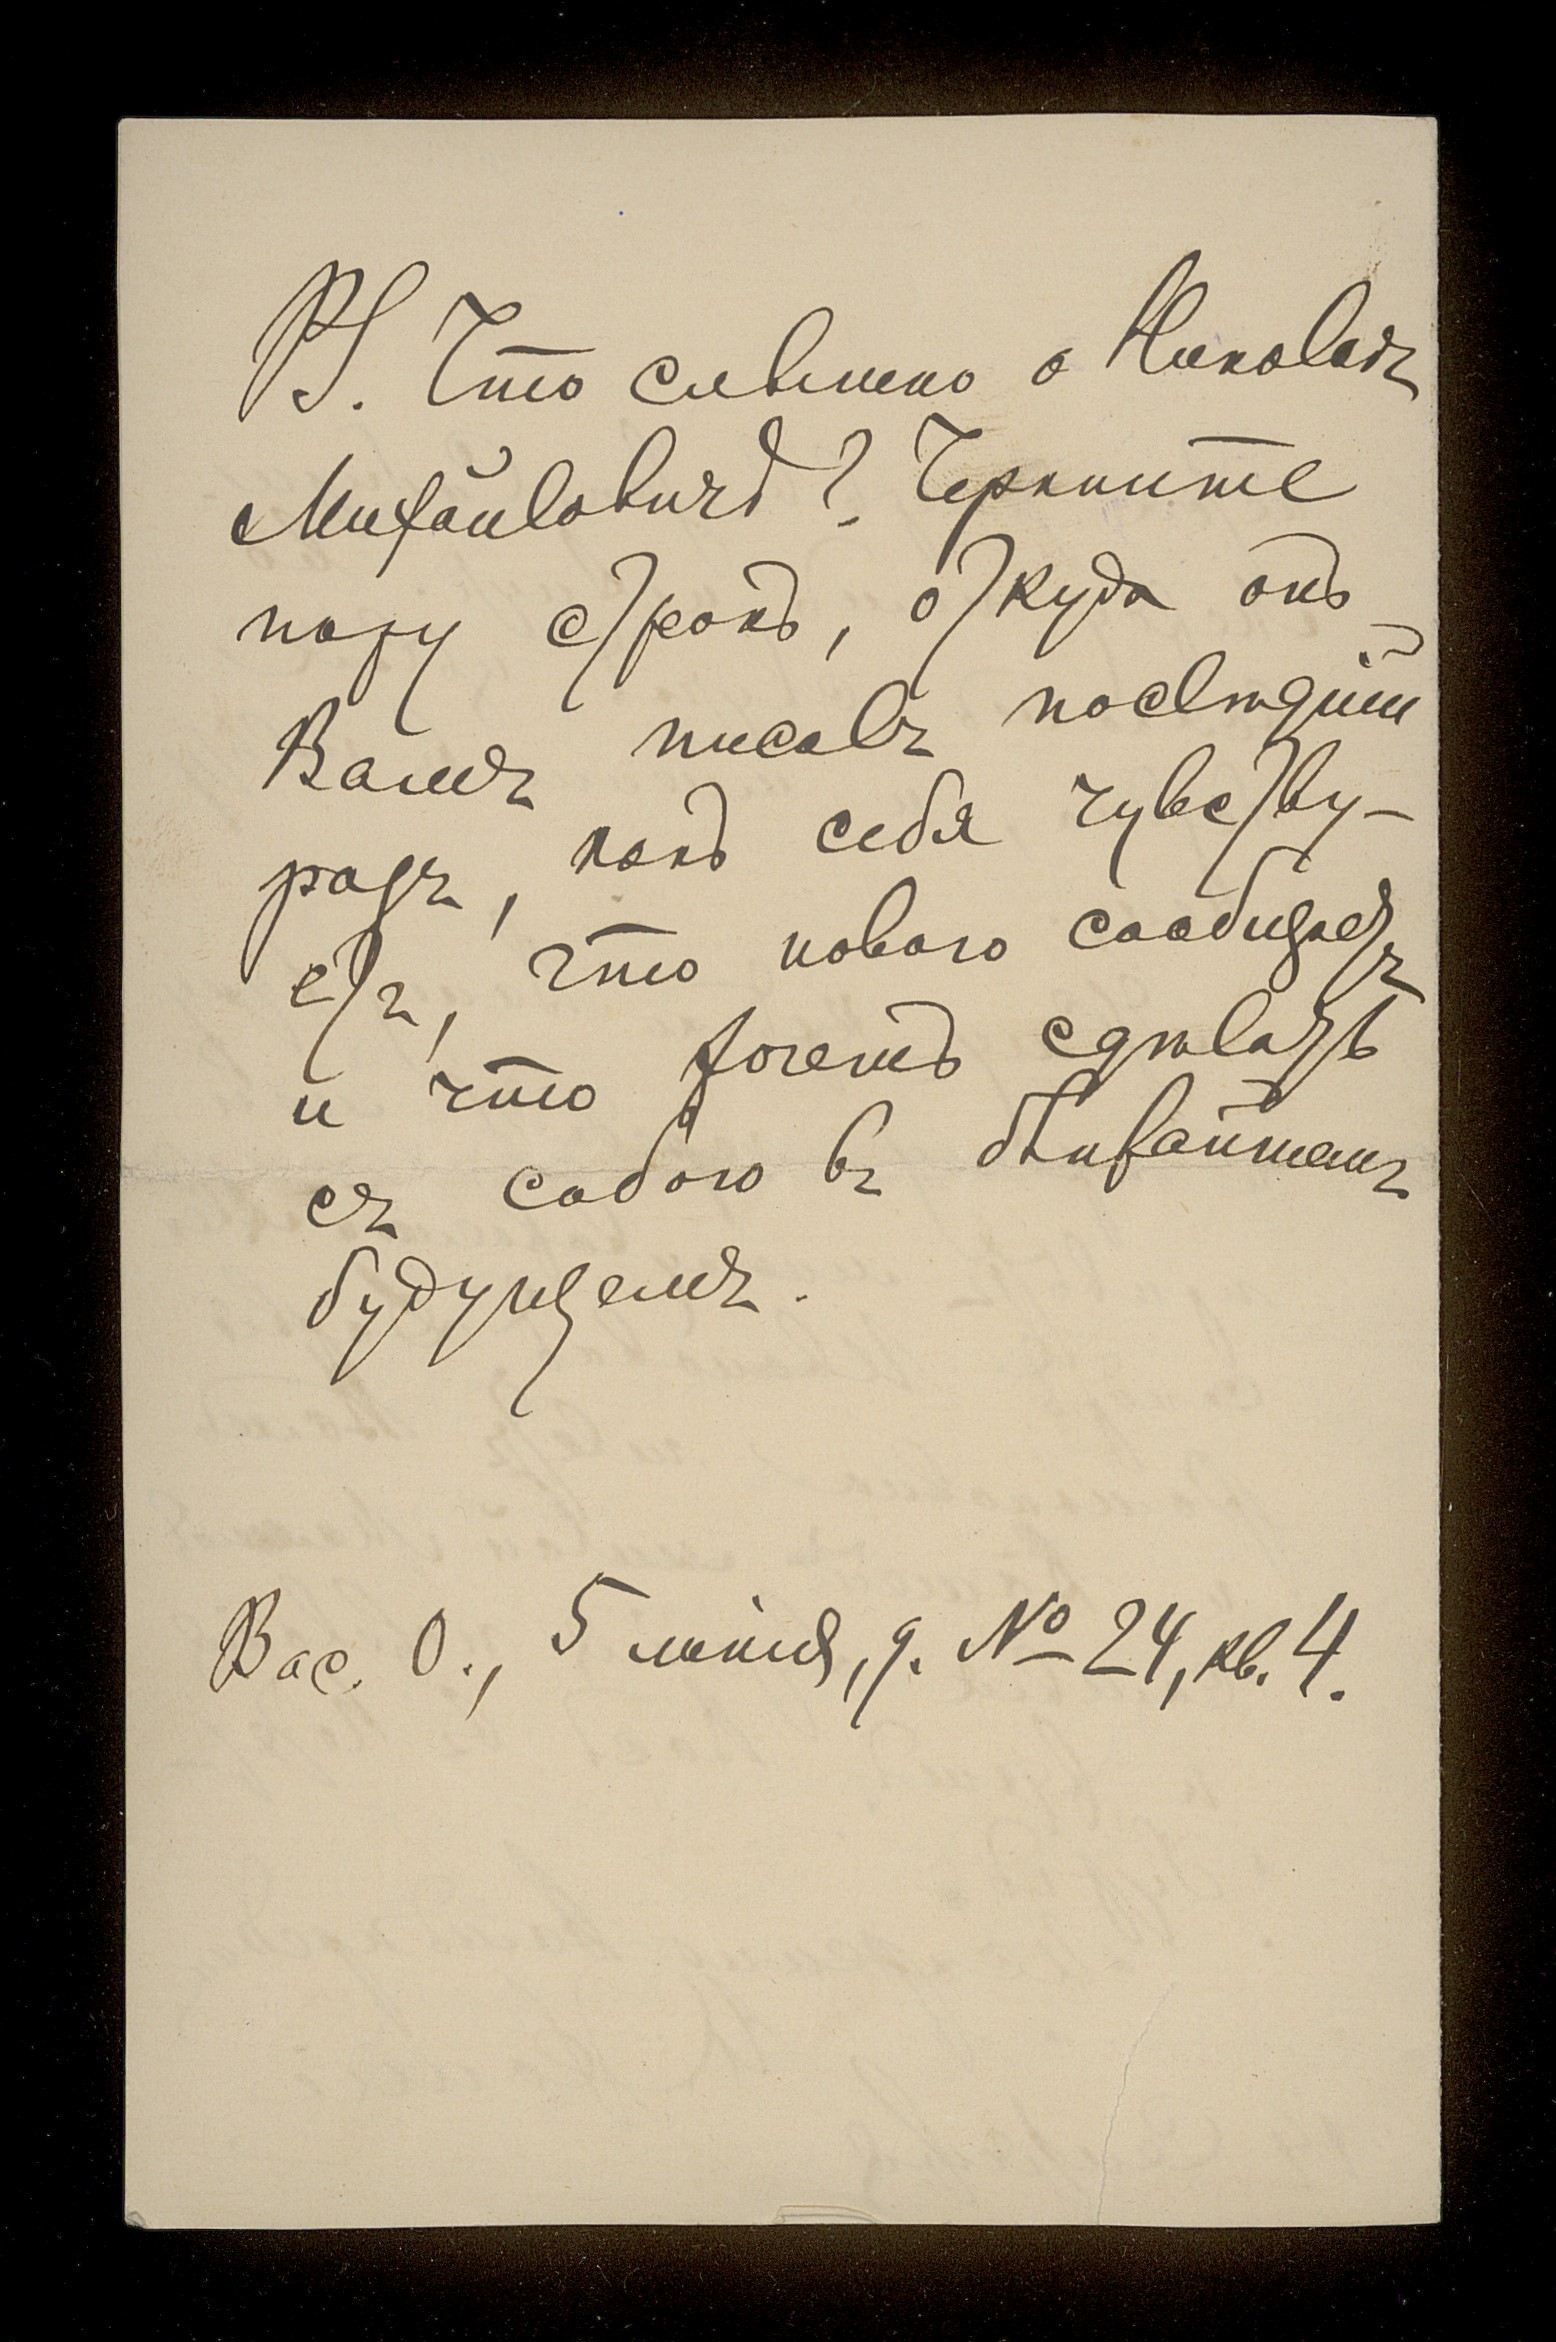 PS. Что слышно о Николаѣ
Михайловичѣ? Черкните
пару строкъ, откуда онъ
Вамъ писалъ послѣдній
разъ, какъ себя чувству-
етъ, что новаго сообщаетъ
и что хочетъ сдѣлать
съ собою въ ближайшемъ
будущемъ.
Вас. О., 5 линія, д. № 24, кв. 4.